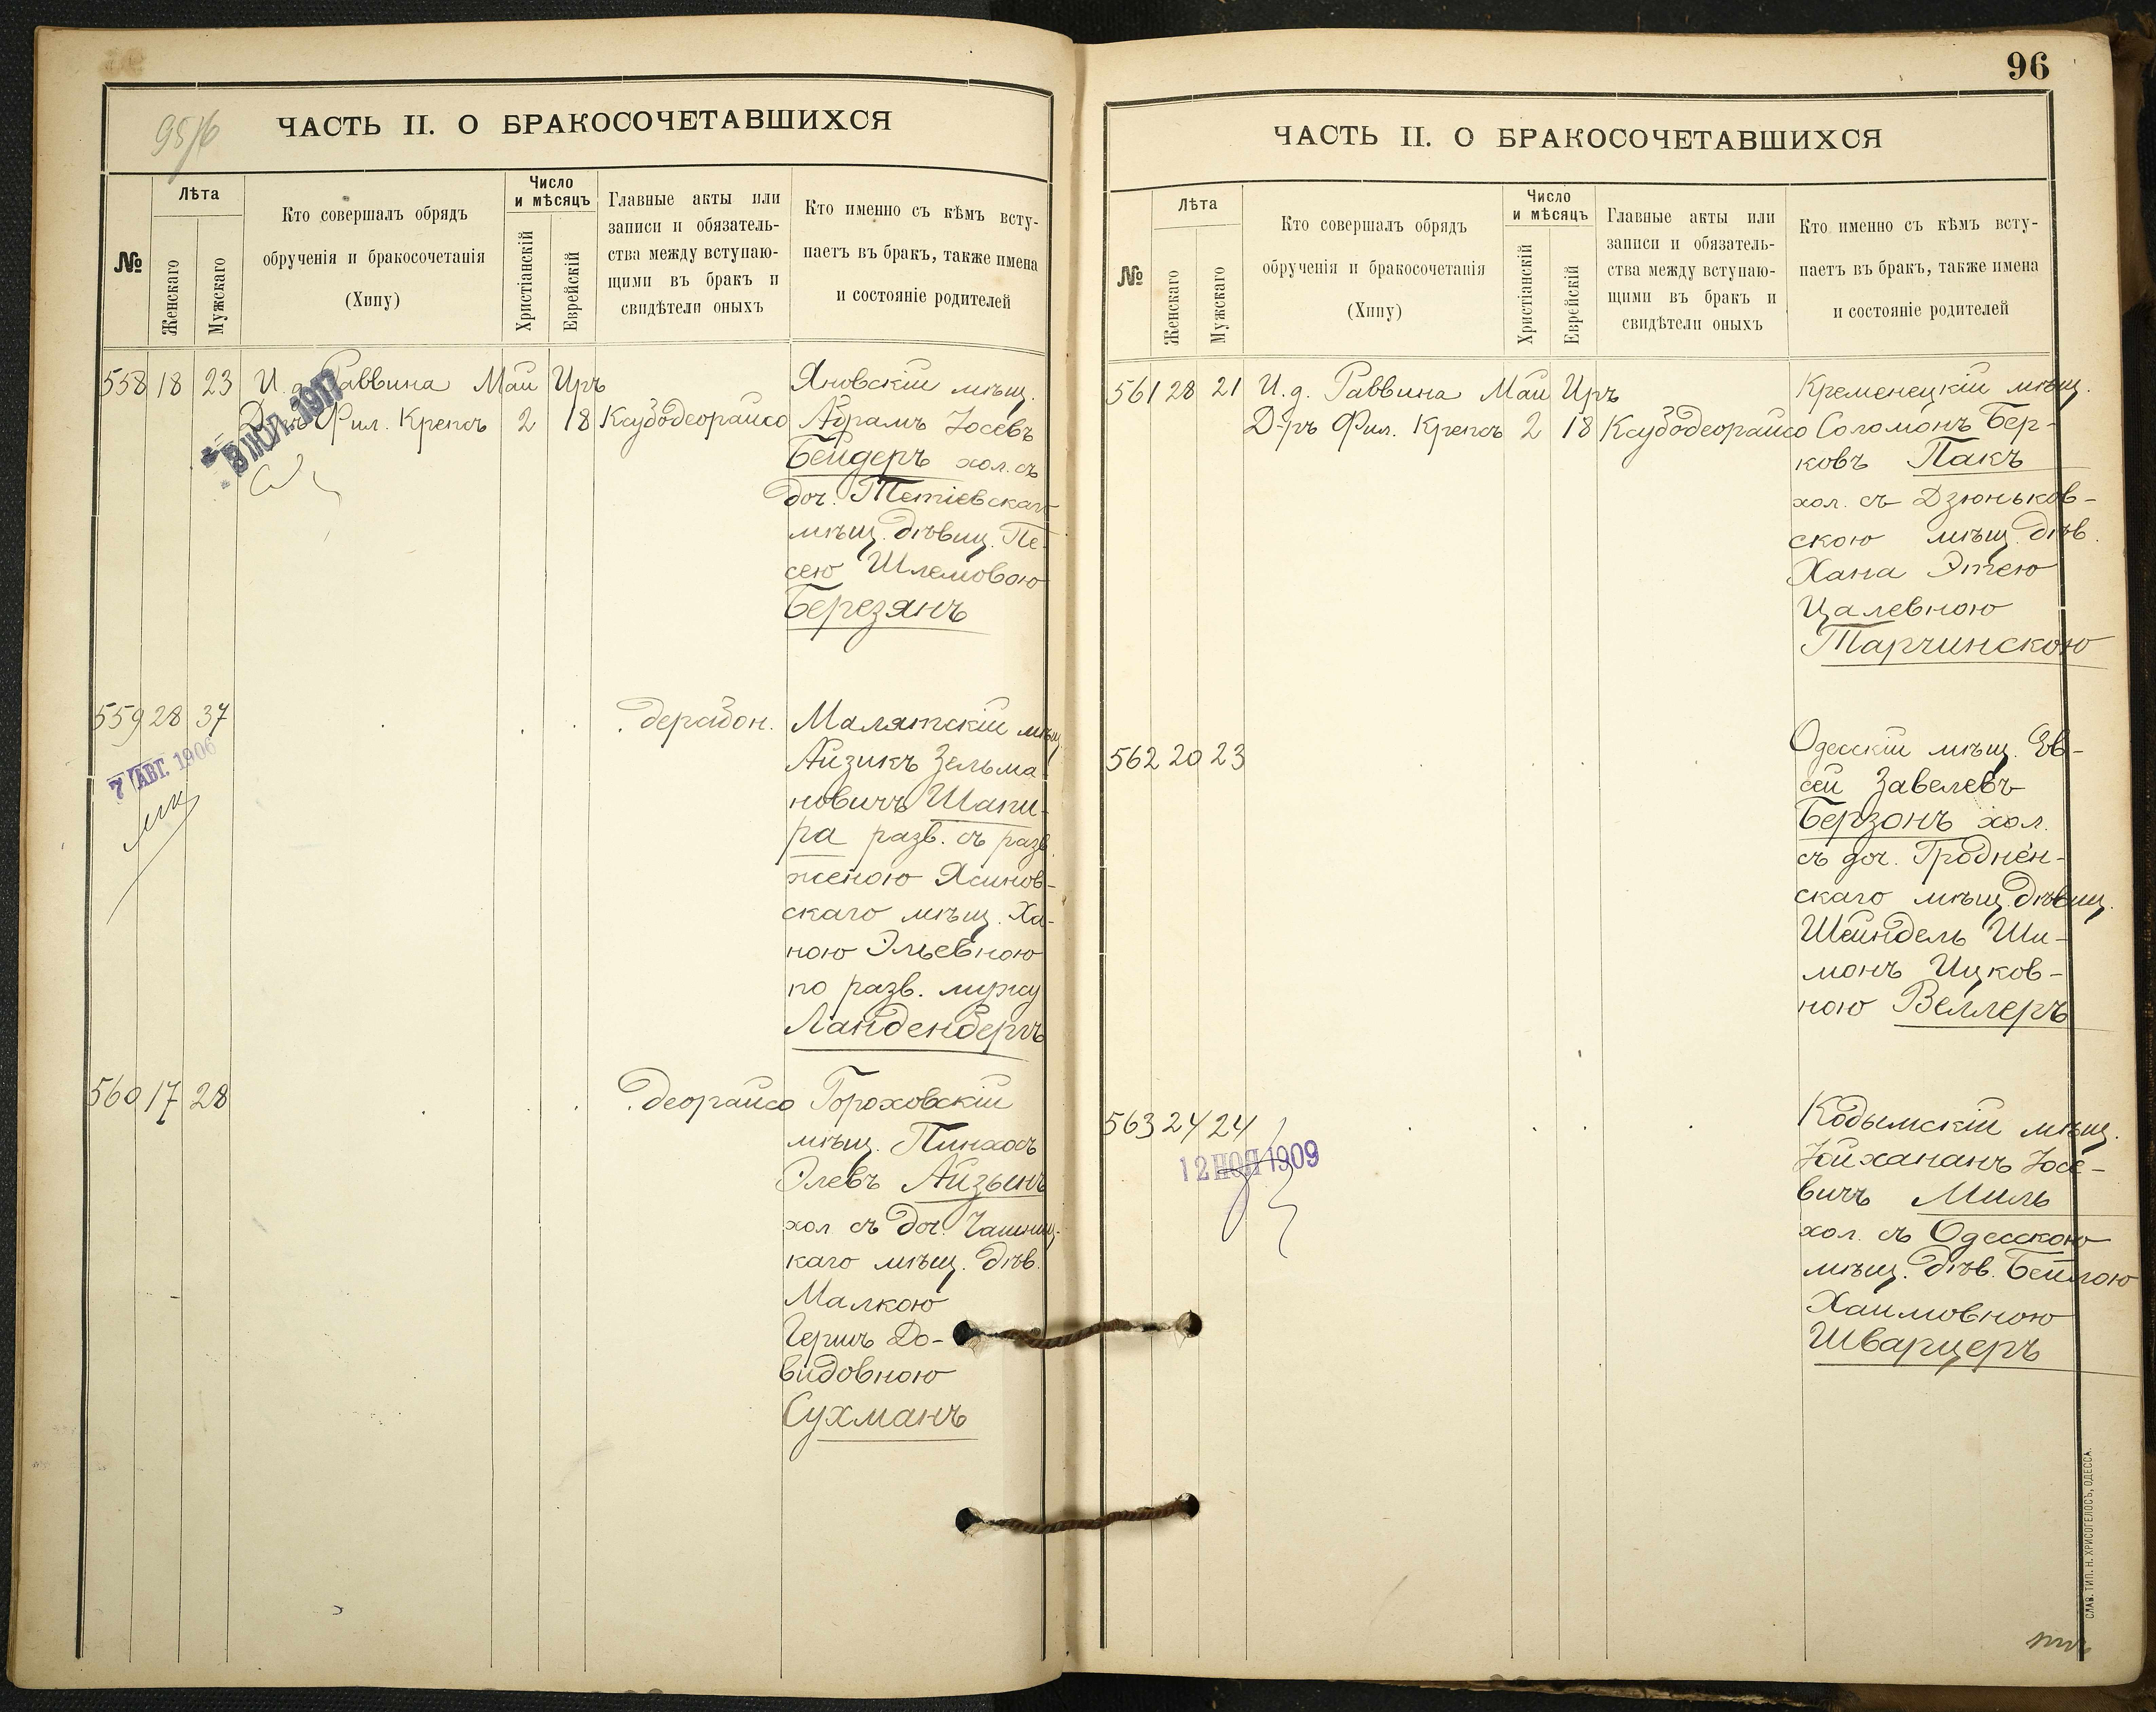 95/6
ЧАСТЬ II. О БРАКОСОЧЕТАВШИХСЯ
№
Лѣта
Женскаго
Мужскаго
Кто совершалъ обрядъ
обрученія и бракосочетанія
(Хипу)
Число
и мѣсяцъ
Христіанскій
Еврейскій
Главные акты или
записи и обязатель-
ства между вступаю-
щими въ бракъ и
свидѣтели оныхъ
Кто именно съ кѣмъ всту-
паетъ въ бракъ, также имена
и состояніе родителей
558 18 23 И. д. Раввина Май Иръ
Д-ръ Фил. Крепсъ 2 18 Ксубодеорайсо
ІЮЛ. 1917
Яновскій мѣщ.
Абрамъ Іосевъ
Бейдеръ хол. съ
доч. Тетіевскаго
мѣщ. дѣвиц. Пе-
сею Шлемовою
Березянъ
559 28 37 . . . . дерабон.
7 АВГ. 1906
Малятскій мѣщ.
Айзикъ Зельма-
новичъ Шапи-
ра разв. съ разв.
женою Ясинов-
скаго мѣщ. Ха-
ною Эльевною
по разв. мужу
Ланденбергъ
560 17 28 . . . . деорайсо
Гороховскій
мѣщ. Пинхосъ
Элевъ Айзынъ
хол. съ доч. Чашниц-
каго мѣщ. дѣв.
Малкою
Геринъ До-
видовною
Сухманъ
96
ЧАСТЬ II. О БРАКОСОЧЕТАВШИХСЯ
№
Лѣта
Женскаго
Мужскаго
Кто совершалъ обрядъ
обрученія и бракосочетанія
(Хипу)
Число
и мѣсяцъ
Христіанскій
Еврейскій
Главные акты или
записи и обязатель-
ства между вступаю-
щими въ бракъ и
свидѣтели оныхъ
Кто именно съ кѣмъ всту-
паетъ въ бракъ, также имена
и состояніе родителей
561 28 21 И. д. Раввина Май Иръ
Д-ръ Фил. Крепсъ 2 18 Ксубодеорайсо
Кременецкій мѣщ.
Соломонъ Бер-
ковъ Пакъ
хол. съ Дзюньков-
скою мѣщ. дѣв.
Хана Этею
Цалевною
Тарчинскою
562 20 23 . . . .
Одесскій мѣщ. Ев-
сей Завелевъ
Берзонъ хол.
съ доч. Гроднен-
скаго мѣщ. дѣвиц.
Шейндель Ши-
монъ Ицков-
ною Веллеръ
563 24 24 . . . .
12 НОЯ 1909
Кодымскій мѣщ.
Іойхананъ Іосе-
вичъ Миль
хол. съ Одесскою
мѣщ. дѣв. Бейлою
Хаимовною
Шварцеръ
СЛАВ. ТИП. Н. ХРИСОГЕЛОСЪ, ОДЕССА.